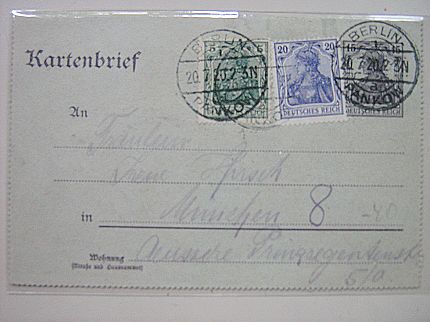 BERLIN
20.7.20.2-3N
PANKOW
5
20 20
DEUTSCHES REICH
15 15
BERLIN
20.7.20.2-3N
PANKOW
DEUTSCHES REICH
Kartenbrief
An
Fräulein
Hirsch
in München 8
Wohnung
(Straße und Hausnummer)
Äussere Prinzregentenstr